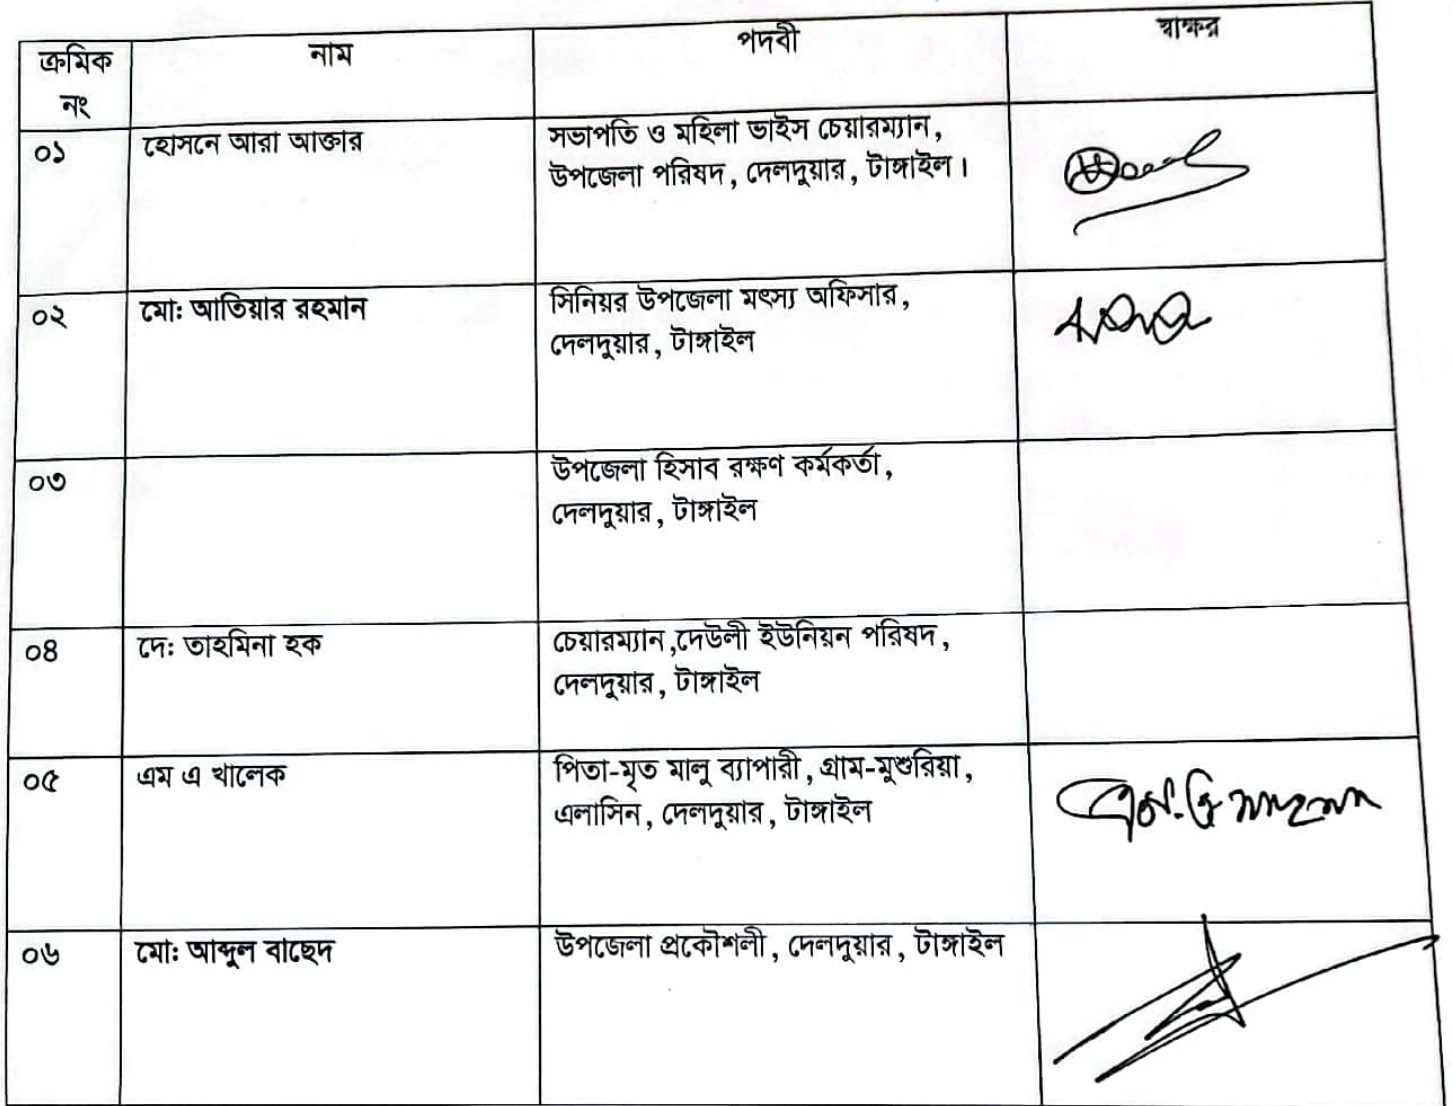 ক্রমিক নং	নাম	পদবী	স্বাক্ষর
০১	হোসনে আরা আক্তার	সভাপতি ও মহিলা ভাইস চেয়ারম্যান,
উপজেলা পরিষদ, দেলদুয়ার, টাঙ্গাইল।
০২	মো: আতিয়ার রহমান	সিনিয়র উপজেলা মৎস্য অফিসার,
দেলদুয়ার, টাঙ্গাইল
০৩	উপজেলা হিসাব রক্ষণ কর্মকর্তা,
দেলদুয়ার, টাঙ্গাইল
০৪	দে: তাহমিনা হক	চেয়ারম্যান,দেউলী ইউনিয়ন পরিষদ,
দেলদুয়ার, টাঙ্গাইল
০৫	এম এ খালেক	পিতা-মৃত মালু ব্যাপারী, গ্রাম-মুশুরিয়া,
এলাসিন, দেলদুয়ার, টাঙ্গাইল
০৬	মো: আব্দুল বাছেদ	উপজেলা প্রকৌশলী, দেলদুয়ার, টাঙ্গাইল